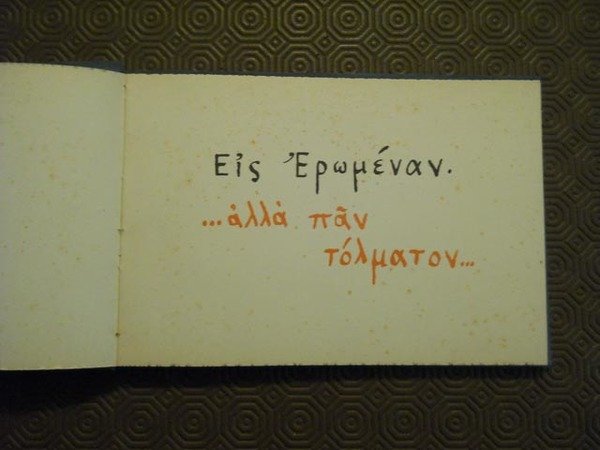 Εἰς Ἐρωμέναν.
...ἀλλὰ πᾶν
τόλματον...